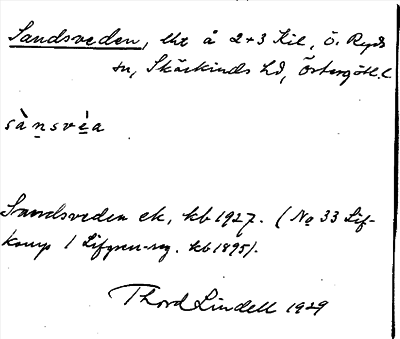 Sandsveden, lht å 2+3 Kil, Ö. Ryds
sn, Skärkinds hd, Östergötl. l.
sànsvèa
Sandsveden ek, kb 1927. (No 33 Lif-
komp / Lifgren-reg. kb 1895).
Thord Lindell 1929